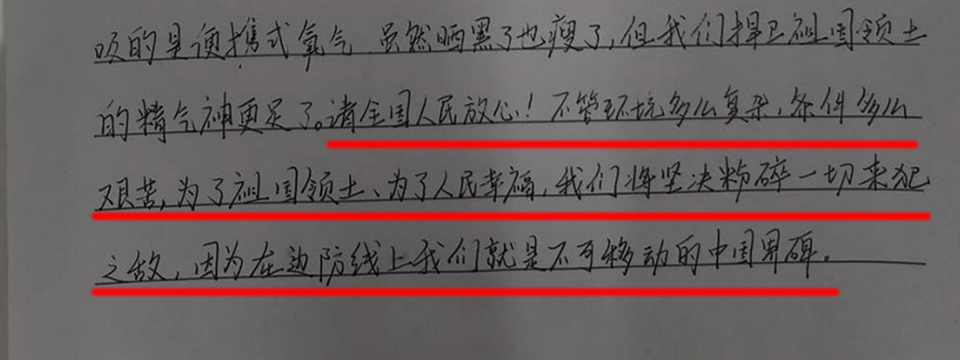 吸的是便携式氧气,虽然晒黑了也瘦了,但我们捍卫祖国领土
的精气神更足了。请全国人民放心!不管环境多么复杂,条件多么
艰苦,为了祖国领土、为了人民幸福,我们将坚决粉碎一切来犯
之敌,因为在边防线上我们就是不可移动的中国界碑。